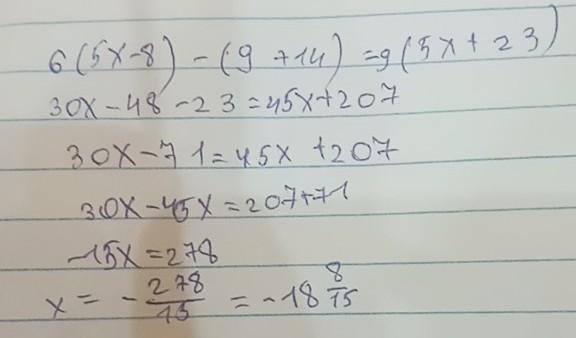 6(5x-8) - (9 +14) =9(5x+23)
30x-48-23=45x+207
30x-71=45x+207
30x-45x=207+71
-15x=278
x = -278/15 = -18 8/15